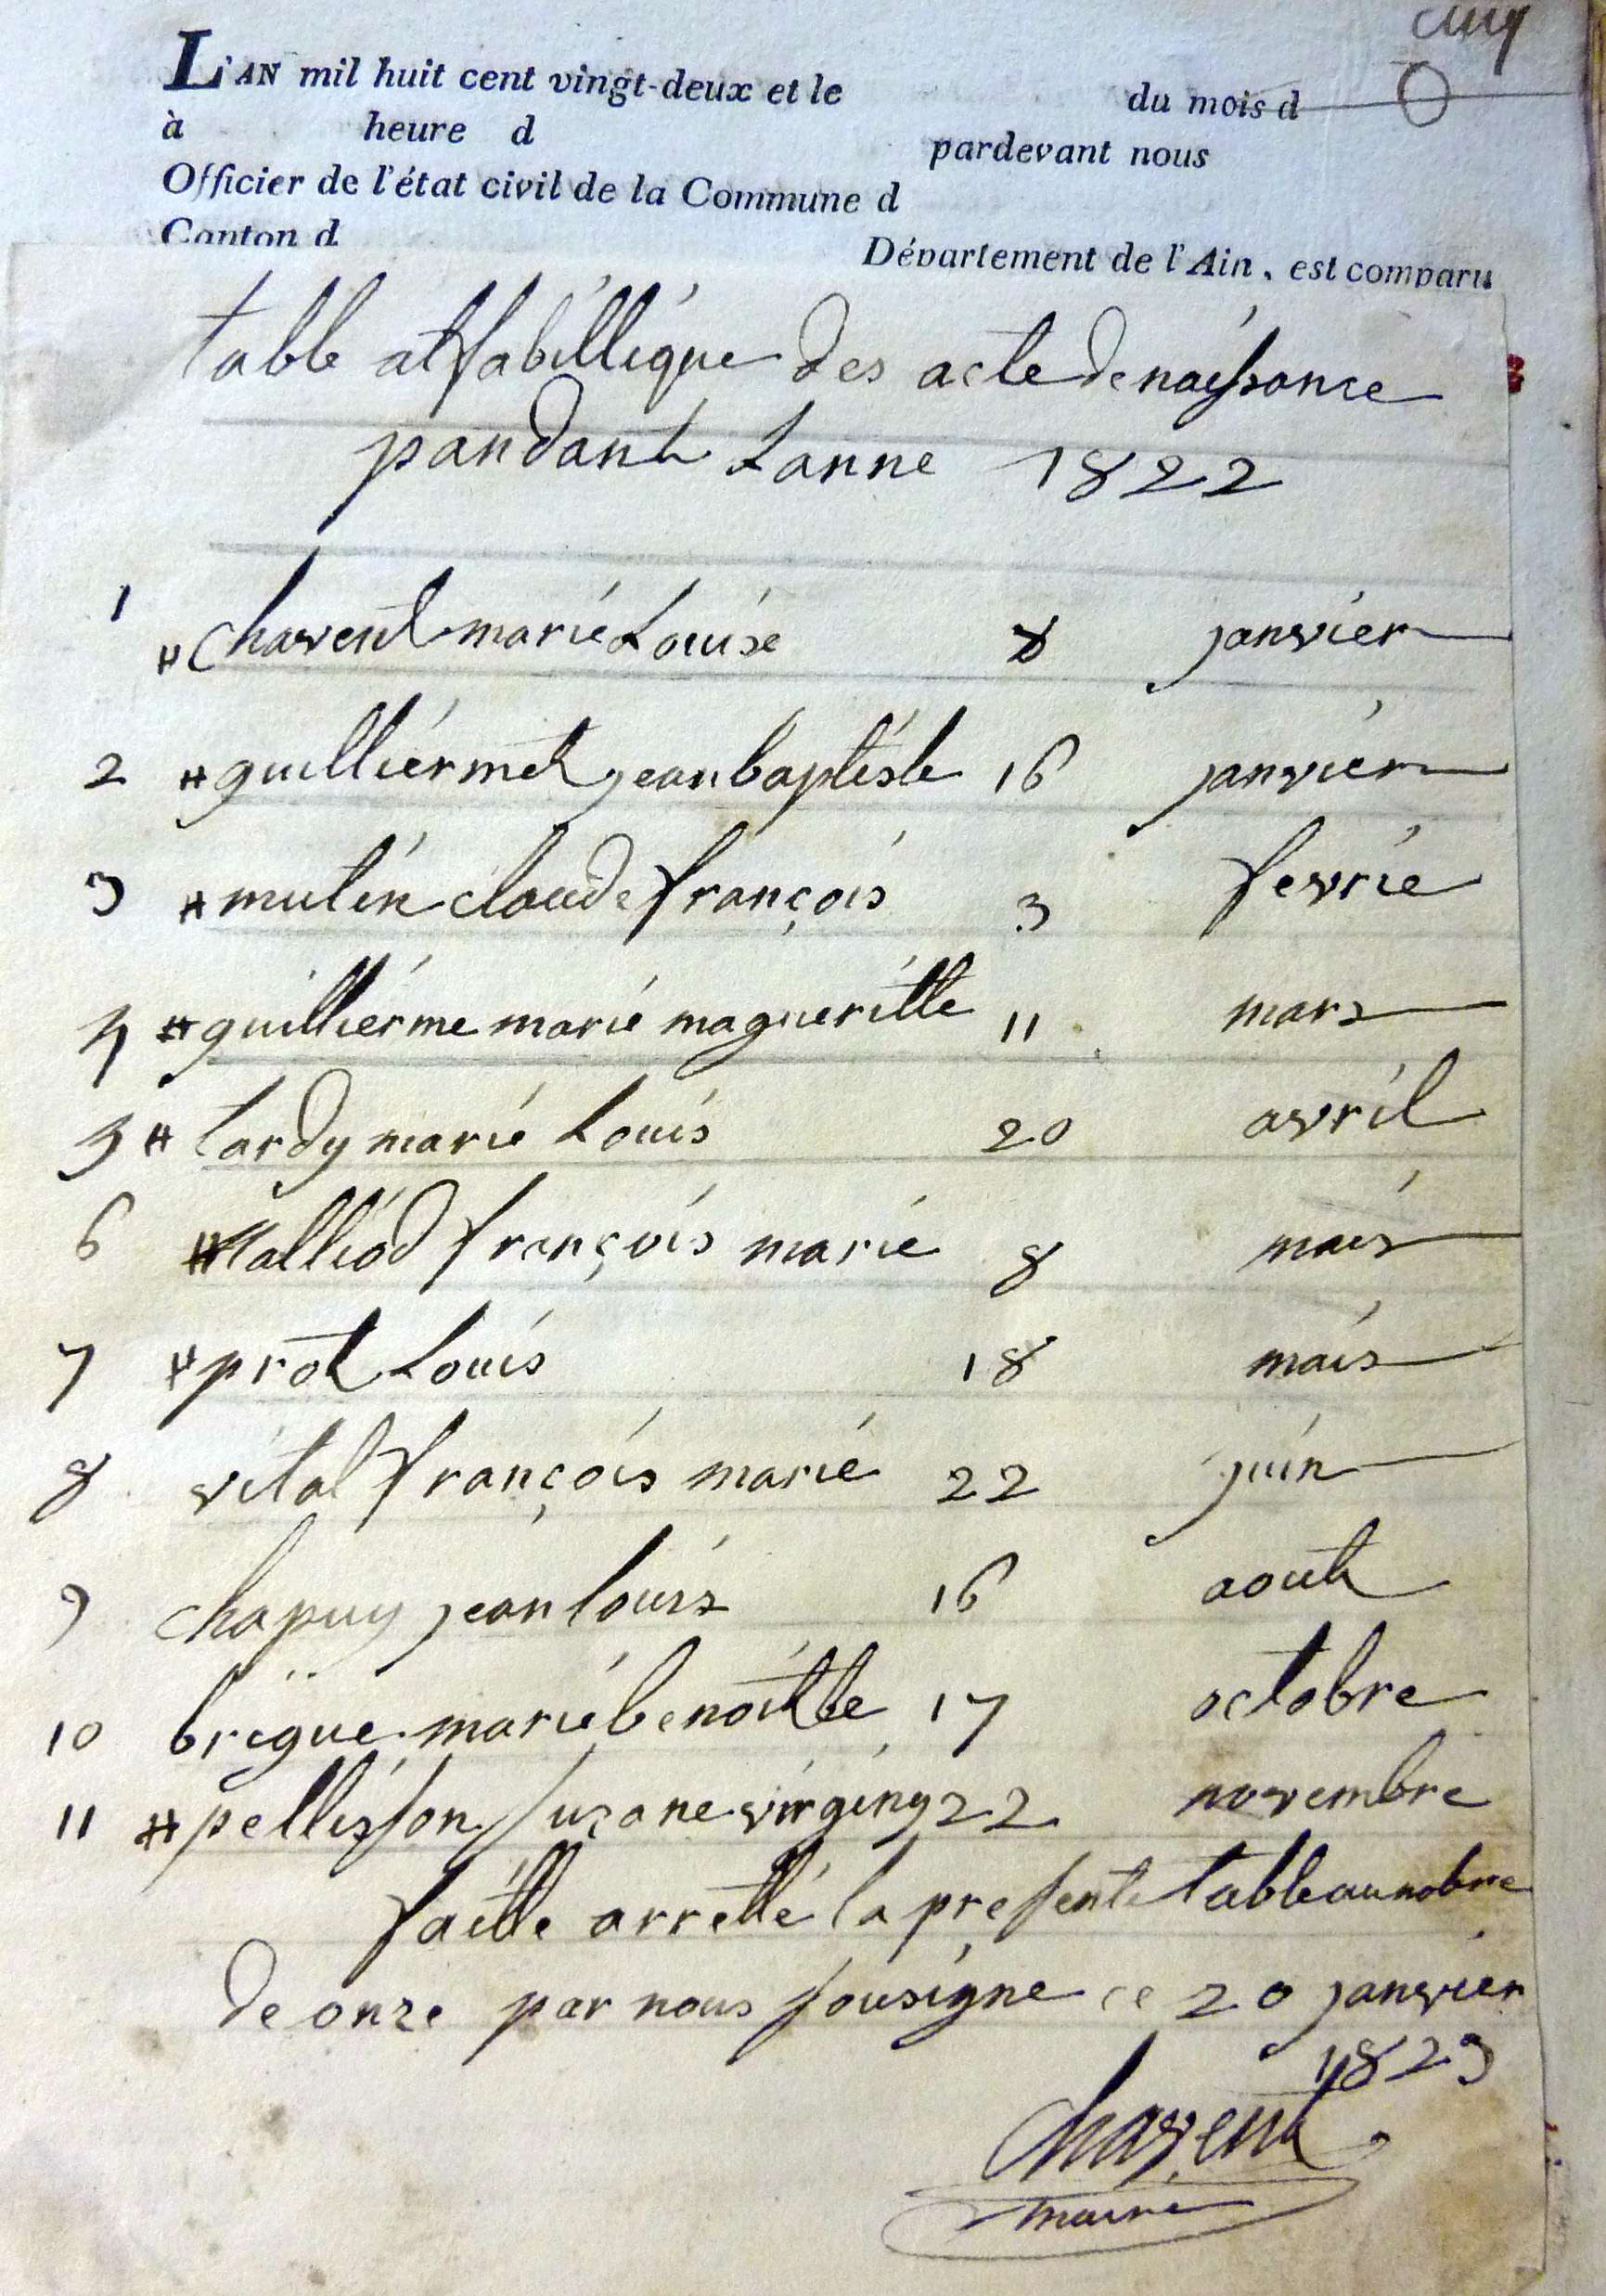 cinq
L'AN mil huit cent vingt-deux et le du mois d
à heure d pardevant nous
Officier de l'état civil de la Commune d
Canton d Département de l'Ain, est comparu
table alfabillique des acte de naissance
pandant Lanne 1822
1 #chavent marie Louise 8 janvier
2 #guilliermet jean baptiste 16 janvier
3 #mutin claude françois 3 fevrie
4 #guillierme marie magueritte 11 mars
5 # tardy marie Louis 20 avril
6 #talliod françois marie 8 mais
7 #prot Louis 18 mais
8 vital françois marie 22 juin
9 chapuy jean louis 16 aout
10 brigue marie benoitte 17 octobre
11 #pellisson suzane virginy 22 novembre
faitte arretté la presente table au nobre
de onze par nous sousigne ce 20 janvier
1823
Chavent
maire